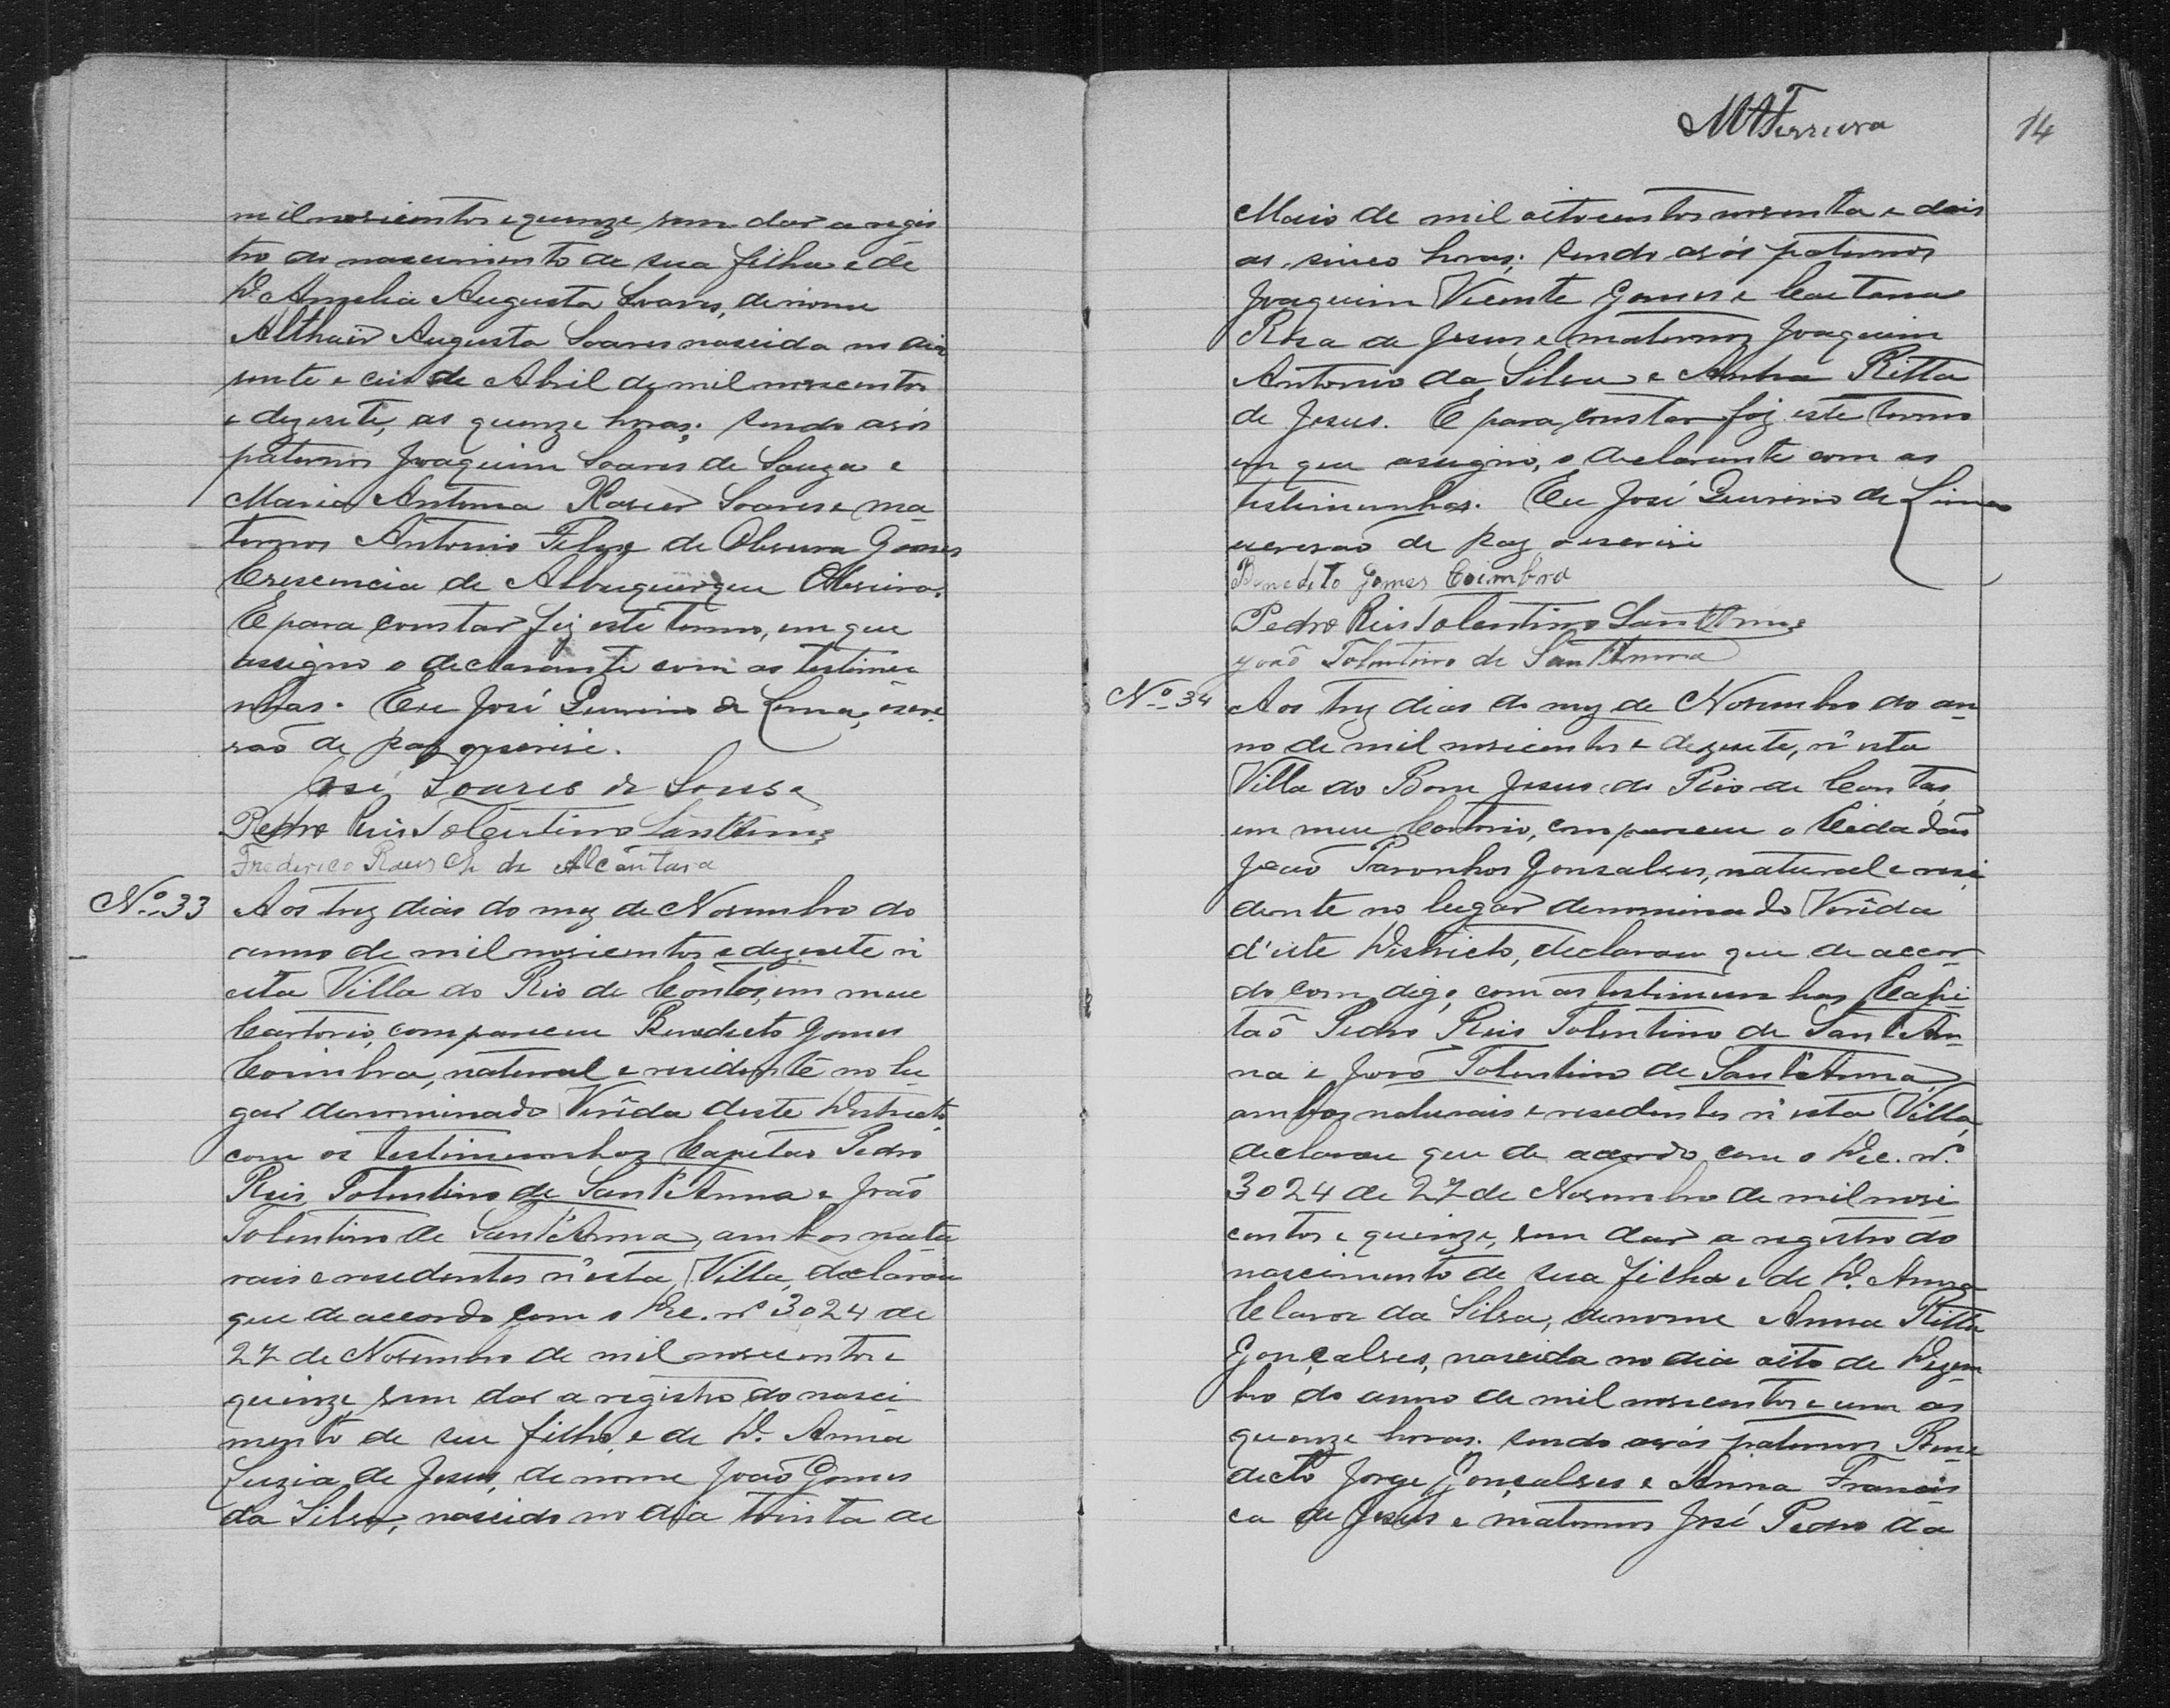 mil novicentos e quinze vem dar a regis
tro do nascimento de sua filha e de
D. Amelia Augusta Soares, de nome
Althair Augusta Soares nascida no dia
vinte e ceis de Abril de mil novecentos
e dezesete, as quinze horas; sendo avós
paternos Joaquim Soares de Souza e
Maria Antonia Xavier Soares e ma-
ternos Antonio Felipe de Oliveira Gomes
Crescencia de Albuquerque Oliveira.
E para constar fiz este termo, em que
assigno o declarante com as testimu-
nhas. Eu José Quirino de Lima, escri
vaõ de paz o escrivi.
José Soares de Sousa
Pedro Reis Tolentino Sant'Anna
Frederico Rausch de Alcântara
Nº 33 Aos trez dias do mez de Novembro do
anno de mil novicentos e dezesete n'
esta Villa do Rio de Contas, em meu
Cartorio, compareceu Benedicto Gomes
Coimbra, natural e residente no lu-
gar denominado Verêda deste Districto,
com as testimunhas Capitão Pedro
Reis Tolentino de Sant'Anna e João
Tolentino de Sant'Anna, ambos natu
rais e residentes n'esta Villa, declarou
que de accordo com o Dec. nº 3024 de
27 de Novembro de mil novecentos e
quinze, vem dar a registro do nasci-
mento de seu filho, e de D. Anna
Luzia de Jesus, de nome João Gomes
da Silva, nascido no dia trinta de
MAFerreira 14
Maio de mil oitocentos noventa e dois
as sinco horas; sendo avós paternos
Joaquim Vicente Gomes e Caetana
Rosa de Jesus e maternos Joaquim
Antonio da Silva e Anna Ritta
de Jesus. E para constar fiz este termo
em que assigno, o declarante com as
testimunhas. Eu José Quirino de Lima
escrivaõ de paz o escrivi
Benedito Gomes Coimbra
Pedro Reis Tolentino Sant'Anna
João Tolentino de Sant'Anna
Nº 34 Aos trez dias do mez de Novembro do an-
no de mil novicentos e dezesete, n'esta
Villa do Bom Jesus do Rio de Contas,
em meu Cartorio, compareceu o Cidadão
João Paronhos Gonsalves, natural e resi
dente no lugar denominado Verêda
d'este Districto, declarou que de accor-
do com digo, com as testimunhas Capi-
taõ Pedro Reis Tolentino de Sant'An-
na e João Tolentino de Sant'Anna,
ambos naturais e residentes n'esta Villa,
declarou que de acordo com o Dec. nº
3024 de 27 de Novembro de mil novi
centos e quinze, vem dar a registro do
nascimento de sua filha e de D. Anna
Clara da Silva, de nome Anna Ritta
Gonçalves, nascida no dia oito de Dezem-
bro do anno de mil novicentos e um as
quinze horas. sendo avós paternos Bene
dicto Jorge Gonçalves e Anna Francis-
ca de Jesus e maternos José Pedro da